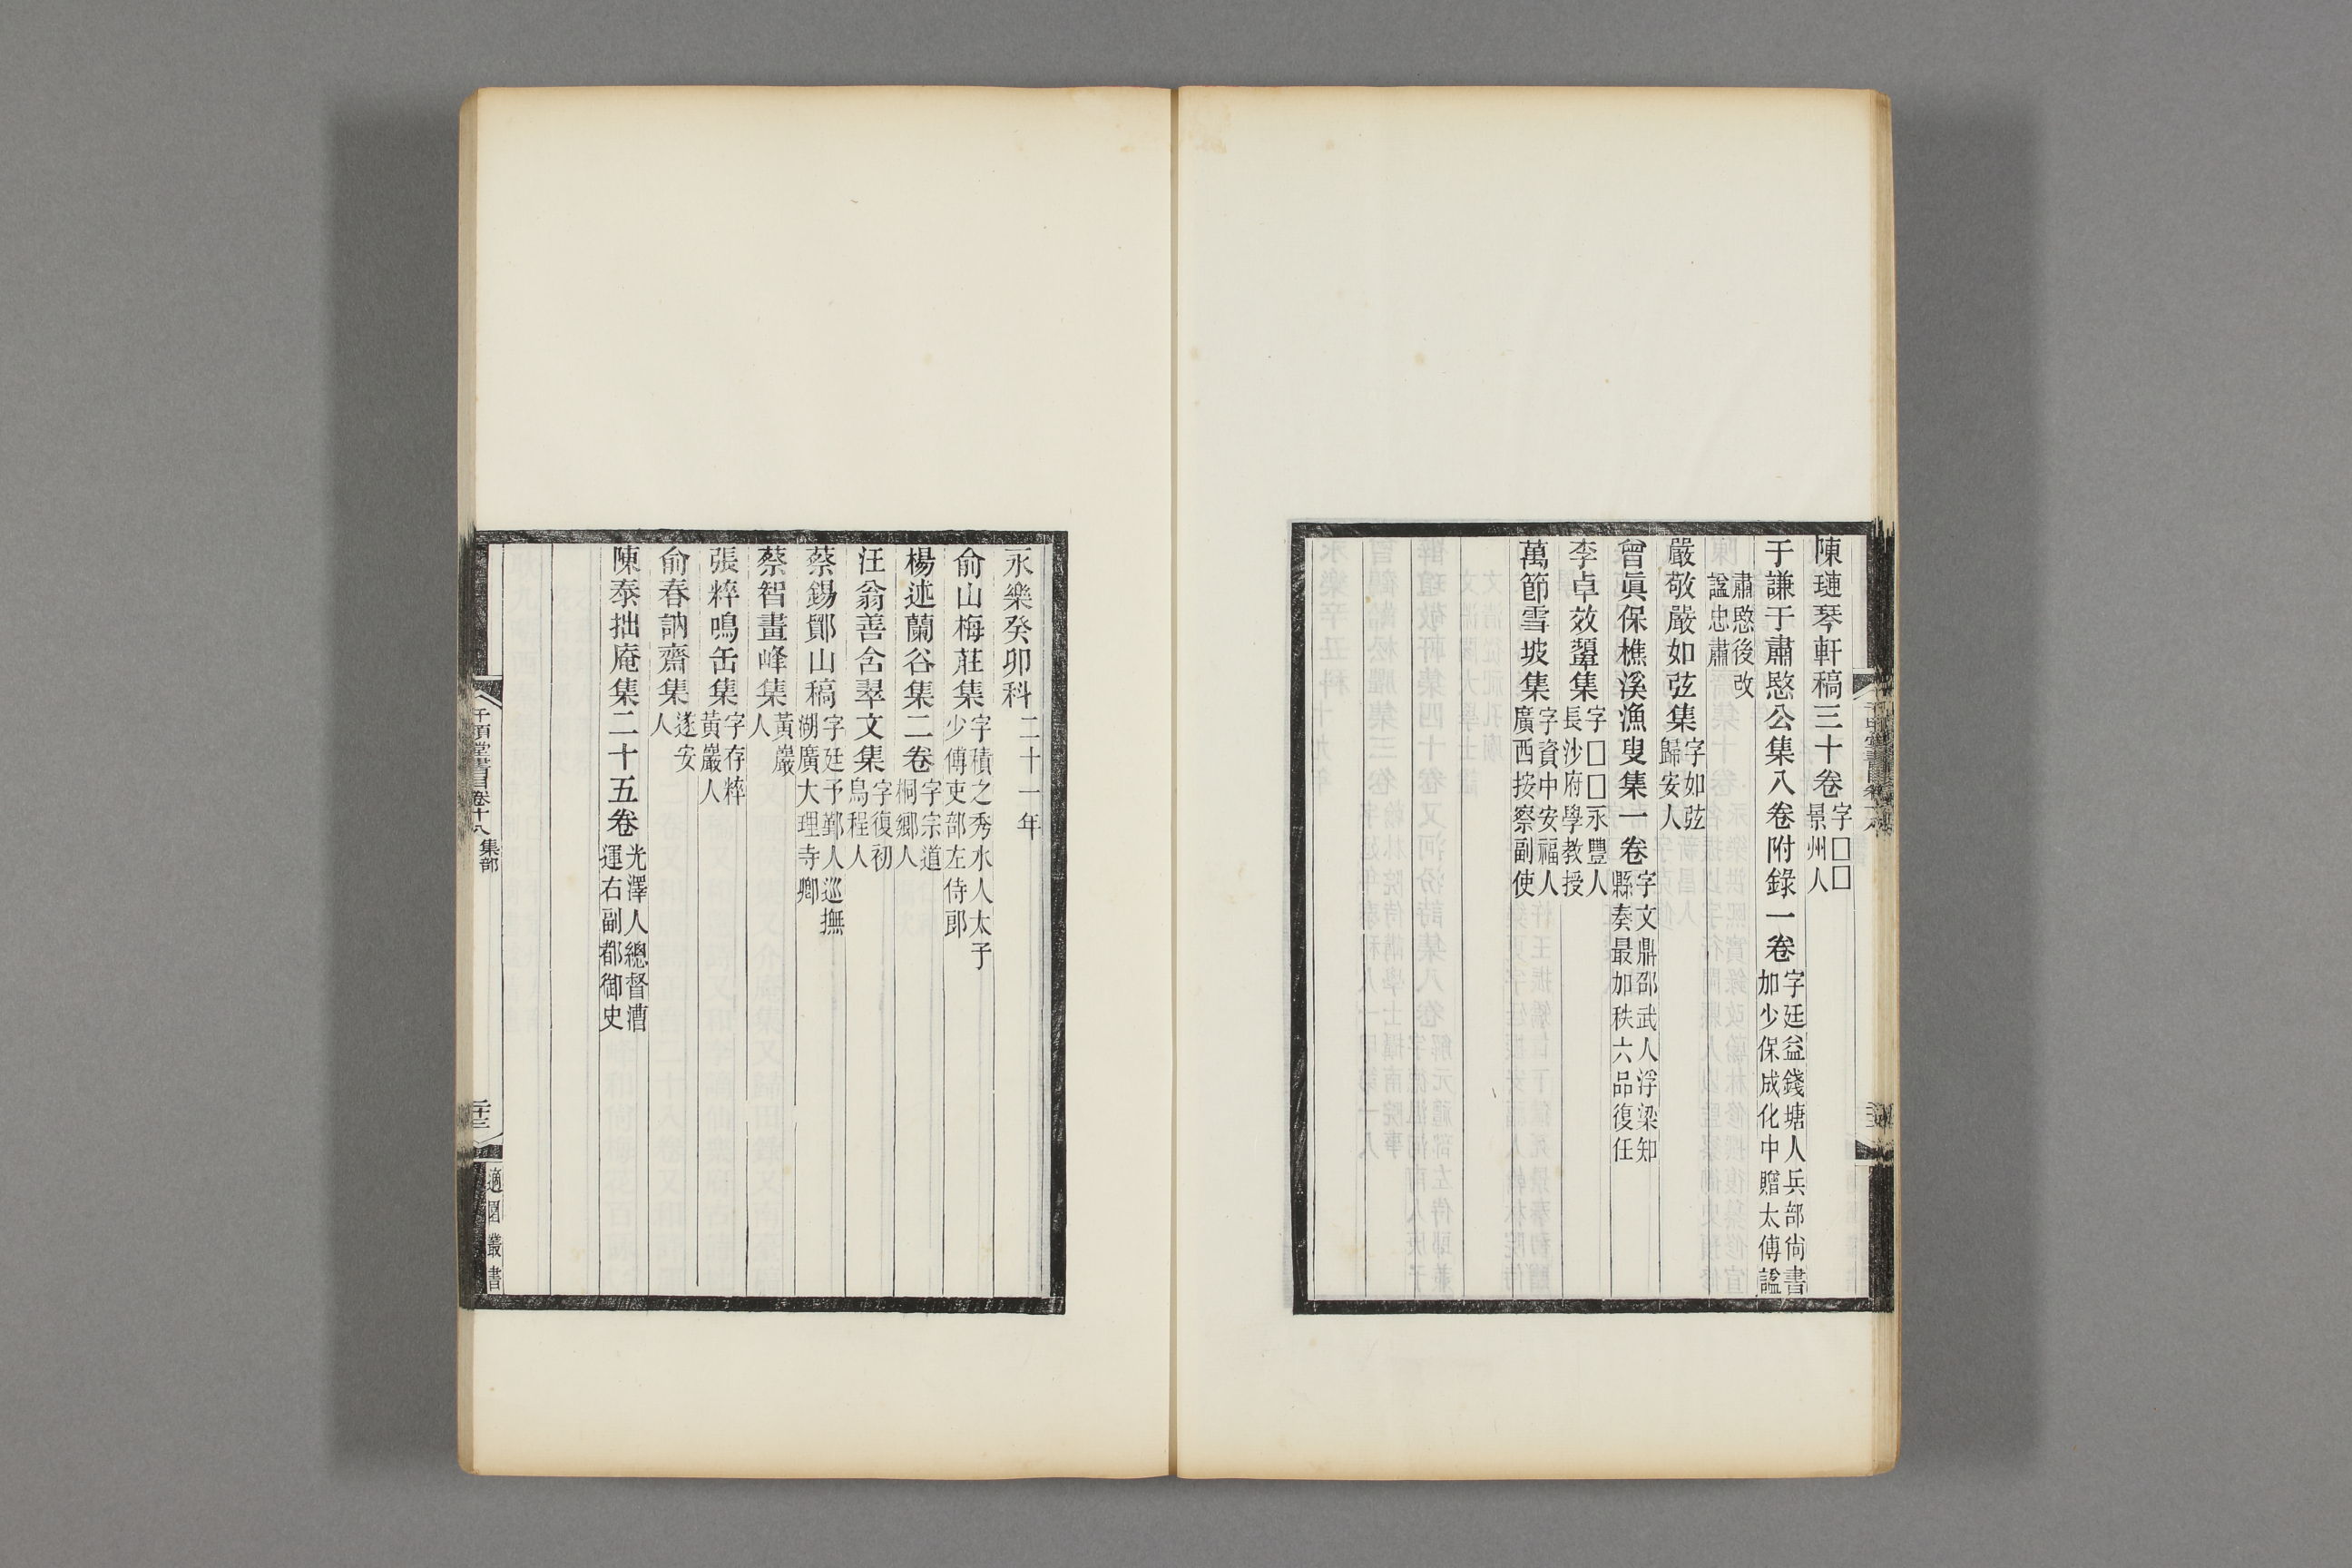 陳璉琴軒稿三十卷字□□景州人
于謙于肅愍公集八卷附錄一卷字廷益錢塘人兵部尙書加少保成化中贈太傅諡
肅愍後改諡忠肅
嚴敬嚴如弦集字如弦歸安人
曾眞保樵溪漁叟集一卷字文鼎邵武人浮梁知縣奏最加秩六品復任
李卓效翬集字□□永豐人長沙府學教授
萬節雪坡集字資中安福人廣西按察副使
永樂癸卯科二十一年
俞山梅莊集字積之秀水人太子少傅吏部左侍郎
楊述蘭谷集二卷字宗道桐鄉人
汪翁善含翠文集字復初烏程人
蔡錫鄮山稿字廷予鄞人巡撫湖廣大理寺卿
蔡智畫峰集黃巖人
張粹鳴缶集字存粹黃巖人
俞春訥齋集遂安人
陳泰拙庵集二十五卷光澤人總督漕運右副都御史
千頃堂書目卷十八 集部
適園叢書